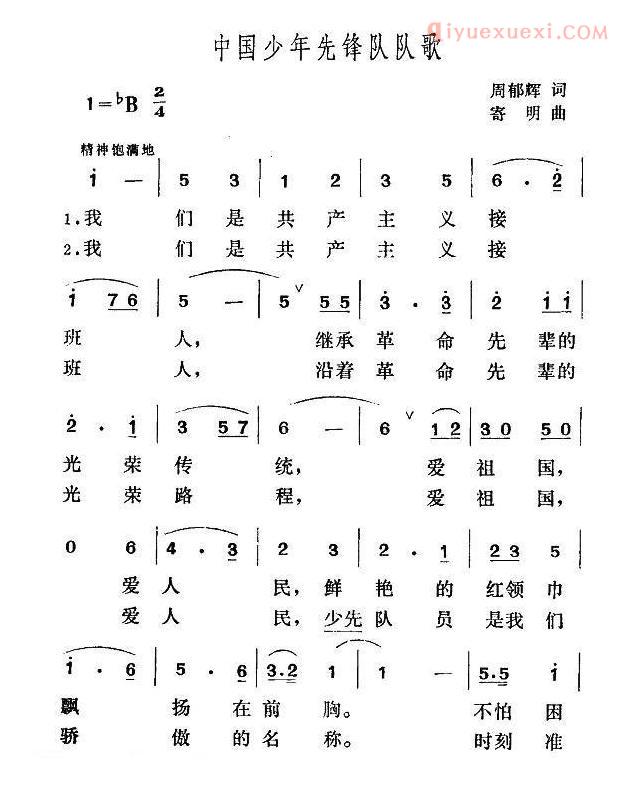 qiyuexuexi.com
中国少年先锋队队歌
1=♭B 2/4
周郁辉 词
寄 明 曲
精神饱满地
i — 5 3 1 2 3 5 6 . 2
1.我 们 是 共 产 主 义 接
2.我 们 是 共 产 主 义 接
i 7 6 5 — 5 ∨ 5 5 3 . 3 2 i i
班 人, 继承 革 命 先 辈的
班 人, 沿着 革 命 先 辈的
2 . i 3 5 7 6 — 6 ∨ 1 2 3 0 5 0
光 荣 传 统, 爱 祖 国,
光 荣 路 程, 爱 祖 国,
0 6 4 . 3 2 3 2 . 1 2 3 5
爱 人 民, 鲜 艳 的 红领 巾
爱 人 民, 少先 队 员 是我 们
i . 6 5 . 6 3.2 1 1 — 5.5 i
飘 扬 在 前 胸。 不怕 困
骄 傲 的 名 称。 时刻 准